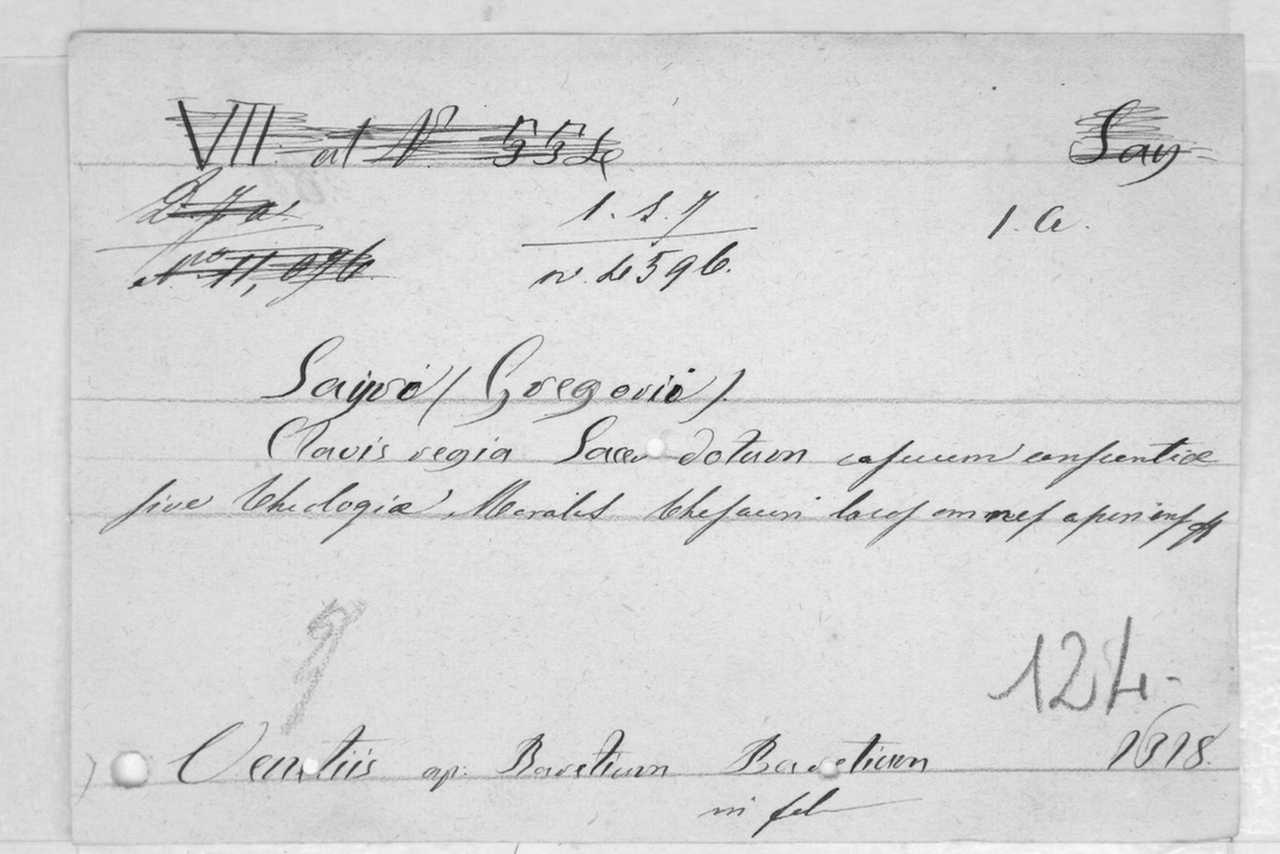 VII at N. 554 Say
D. 7 a. 1. S. 7 1. a.
No 11,096 n. 4596.
Sayro (Gregorio).
Clavis regia Sacerdotum casuum conscientiæ
sive Theologiæ Moralis Thesauri locos omnes aperiens
9 124-
Venetiis ap. Baretium Baretium 1618.
in fol